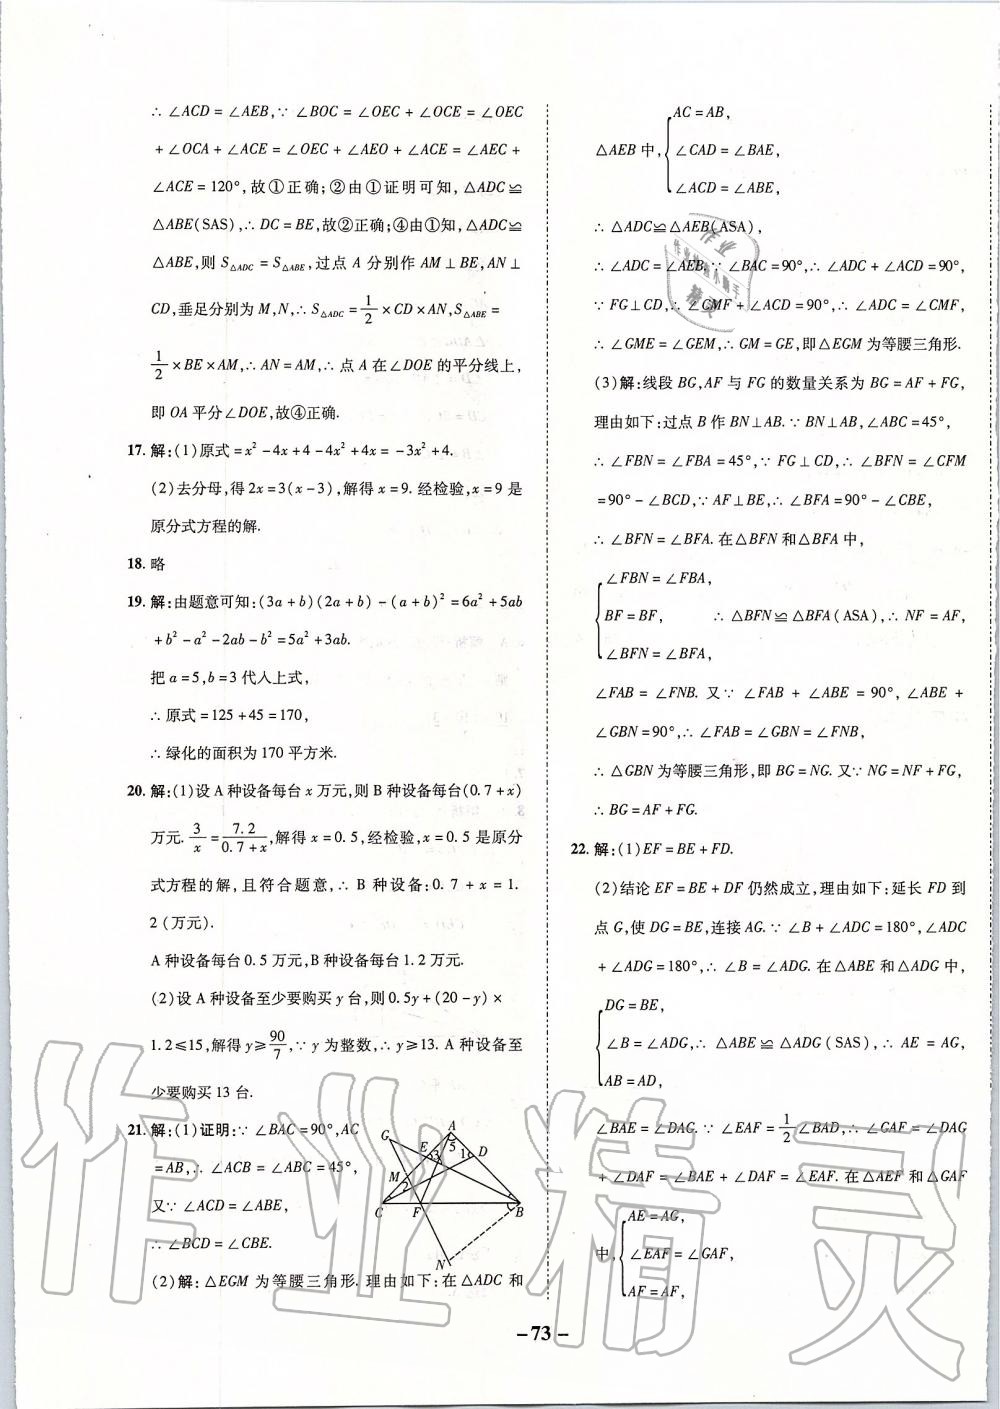 ∴ ∠ACD = ∠AEB,∵ ∠BOC = ∠OEC + ∠OCE = ∠OEC
+ ∠OCA + ∠ACE = ∠OEC + ∠AEO + ∠ACE = ∠AEC +
∠ACE = 120°,故①正确;②由①证明可知,△ADC≌
△ABE(SAS),∴ DC = BE,故②正确;④由①知,△ADC≌
△ABE,则 S△ADC = S△ABE,过点 A 分别作 AM ⊥ BE,AN ⊥
CD,垂足分别为 M,N,∴ S△ADC = 1/2 × CD × AN,S△ABE =
1/2 × BE × AM,∴ AN = AM,∴ 点 A 在∠DOE 的平分线上,
即 OA 平分∠DOE,故④正确.
17. 解:(1)原式 = x² - 4x + 4 - 4x² + 4x = - 3x² + 4.
(2)去分母,得 2x = 3(x - 3),解得 x = 9. 经检验,x = 9 是
原分式方程的解.
18. 略
19. 解:由题意可知:(3a + b)(2a + b) - (a + b)² = 6a² + 5ab
+ b² - a² - 2ab - b² = 5a² + 3ab.
把 a = 5,b = 3 代入上式,
∴ 原式 = 125 + 45 = 170,
∴ 绿化的面积为 170 平方米.
20. 解:(1)设 A 种设备每台 x 万元,则 B 种设备每台(0.7 + x)
万元. 3/x = 7.2/(0.7 + x),解得 x = 0.5,经检验,x = 0.5 是原分
式方程的解,且符合题意,∴ B 种设备:0.7 + x = 1.
2(万元).
A 种设备每台 0.5 万元,B 种设备每台 1.2 万元.
(2)设 A 种设备至少要购买 y 台,则 0.5y + (20 - y) ×
1.2 ≤ 15,解得 y ≥ 90/7,∵ y 为整数,∴ y ≥ 13. A 种设备至
少要购买 13 台.
21. 解:(1)证明:∵ ∠BAC = 90°,AC
= AB,∴ ∠ACB = ∠ABC = 45°,
又∵ ∠ACD = ∠ABE,
∴ ∠BCD = ∠CBE.
(2)解:△EGM 为等腰三角形. 理由如下:在△ADC 和
G
A
E
3
5
1
D
M
2
C
F
B
N
△AEB 中,
AC = AB,
∠CAD = ∠BAE,
∠ACD = ∠ABE,
∴ △ADC≌△AEB(ASA),
∴ ∠ADC = ∠AEB.∵ ∠BAC = 90°,∴ ∠ADC + ∠ACD = 90°,
∵ FG ⊥ CD,∴ ∠CMF + ∠ACD = 90°,∴ ∠ADC = ∠CMF,
∴ ∠GME = ∠GEM,∴ GM = GE,即△EGM 为等腰三角形.
(3)解:线段 BG,AF 与 FG 的数量关系为 BG = AF + FG,
理由如下:过点 B 作 BN ⊥ AB.∵ BN ⊥ AB,∠ABC = 45°,
∴ ∠FBN = ∠FBA = 45°,∵ FG ⊥ CD,∴ ∠BFN = ∠CFM
= 90° - ∠BCD,∵ AF ⊥ BE,∴ ∠BFA = 90° - ∠CBE,
∴ ∠BFN = ∠BFA. 在△BFN 和△BFA 中,
∠FBN = ∠FBA,
BF = BF, ∴ △BFN ≌ △BFA(ASA),∴ NF = AF,
∠BFN = ∠BFA,
∠FAB = ∠FNB. 又∵ ∠FAB + ∠ABE = 90°,∠ABE +
∠GBN = 90°,∴ ∠FAB = ∠GBN = ∠FNB,
∴ △GBN 为等腰三角形,即 BG = NG. 又∵ NG = NF + FG,
∴ BG = AF + FG.
22. 解:(1)EF = BE + FD.
(2)结论 EF = BE + DF 仍然成立,理由如下:延长 FD 到
点 G,使 DG = BE,连接 AG.∵ ∠B + ∠ADC = 180°,∠ADC
+ ∠ADG = 180°,∴ ∠B = ∠ADG. 在△ABE 和△ADG 中,
DG = BE,
∠B = ∠ADG,∴ △ABE ≌ △ADG(SAS),∴ AE = AG,
AB = AD,
∠BAE = ∠DAG.∵ ∠EAF = 1/2 ∠BAD,∴ ∠GAF = ∠DAG
+ ∠DAF = ∠BAE + ∠DAF = ∠EAF. 在△AEF 和△GAF
中,
AE = AG,
∠EAF = ∠GAF,
AF = AF,
- 73 -
作业精灵